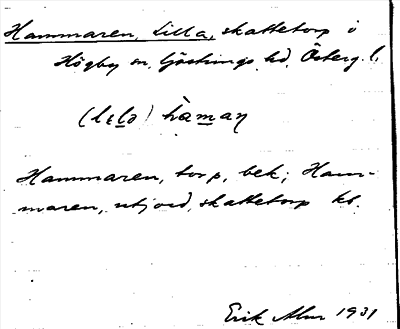 Hammaren, Lilla, skattetorp i
Högby sn, Göstrings hd, Österg. l.
(lɛlᴐ) hàmaɳ
Hammaren, torp, bek.; Ham-
maren, utjord, skattetorp kb.
Erik Alm 1931